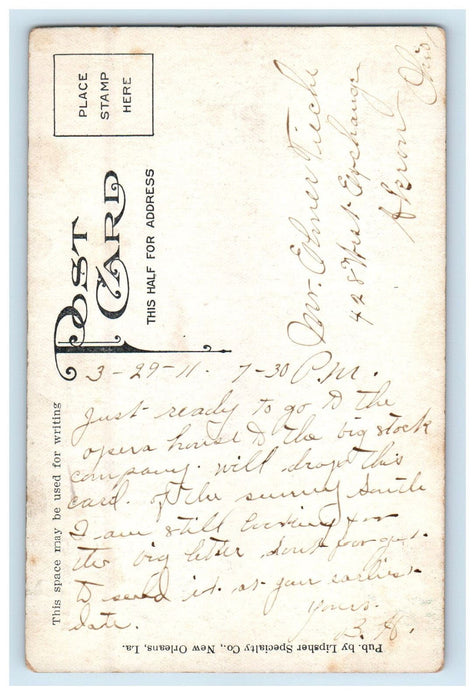 PLACE
STAMP
HERE
POST
CARD
THIS HALF FOR ADDRESS
This space may be used for writing
Pub. by Lipsher Specialty Co., New Orleans, La.
Mr. Elmer
428 West Exchange
Akron Ohio
3-29-11. 7-30 P.M.
Just ready to go to the
opera house to the big stock
company. will drop this
card. of the sunny South
I am still looking for
the big letter dont forget
to send it at your earliest
date. yours.
B. H.